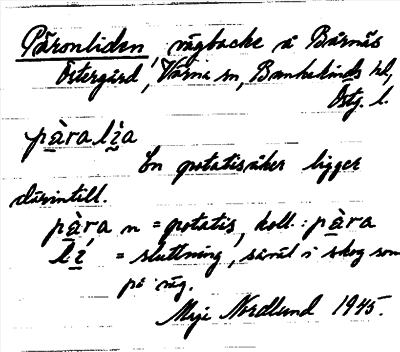 Päronliden vägbacke å Bärnäs
Östergård, Värna sn, Bankekinds hd,
Östg. l.
pàra lìa
En potatisåker ligger
därintill.
pàra n = potatis, koll. : pàra
lí = sluttning, såväl i skog som
på väg.
Maja Nordlund 1945.